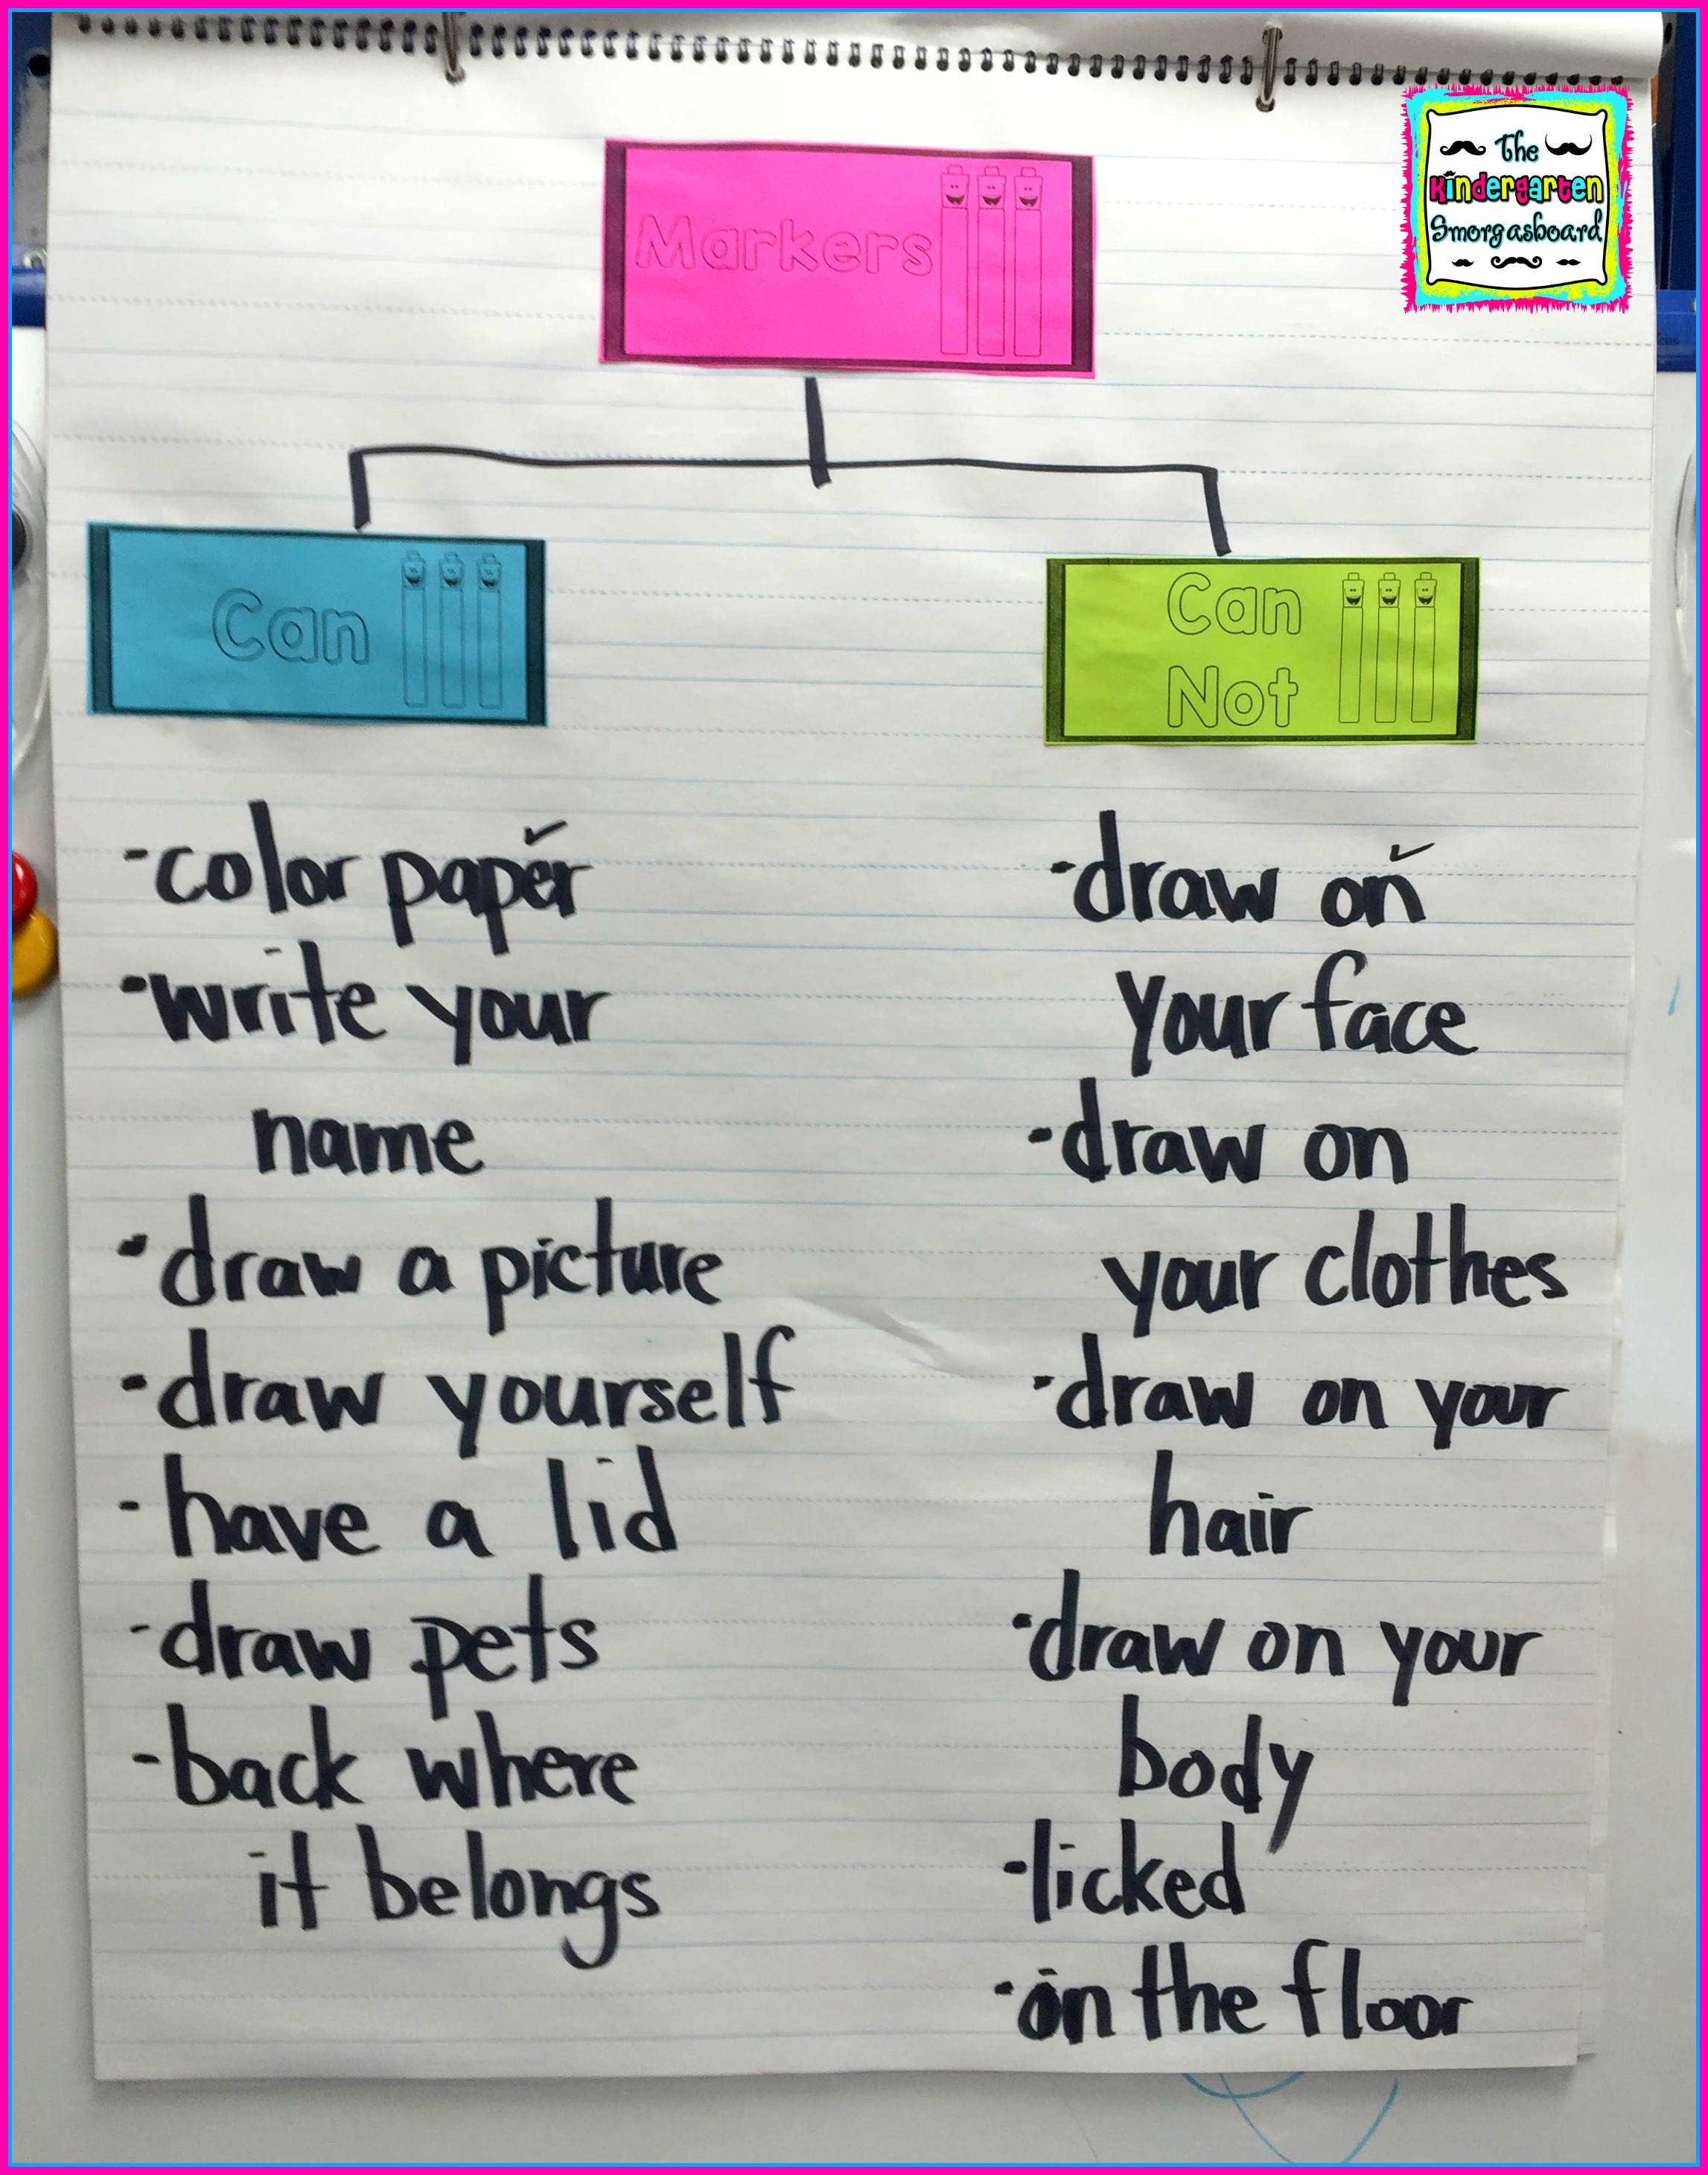 The
Kindergarten
Smorgasboard
Markers
Can
-color paper
-write your
name
-draw a picture
-draw yourself
-have a lid
-draw pets
-back where
it belongs
Can
Not
-draw on
your face
-draw on
your clothes
-draw on your
hair
-draw on your
body
-licked
-on the floor